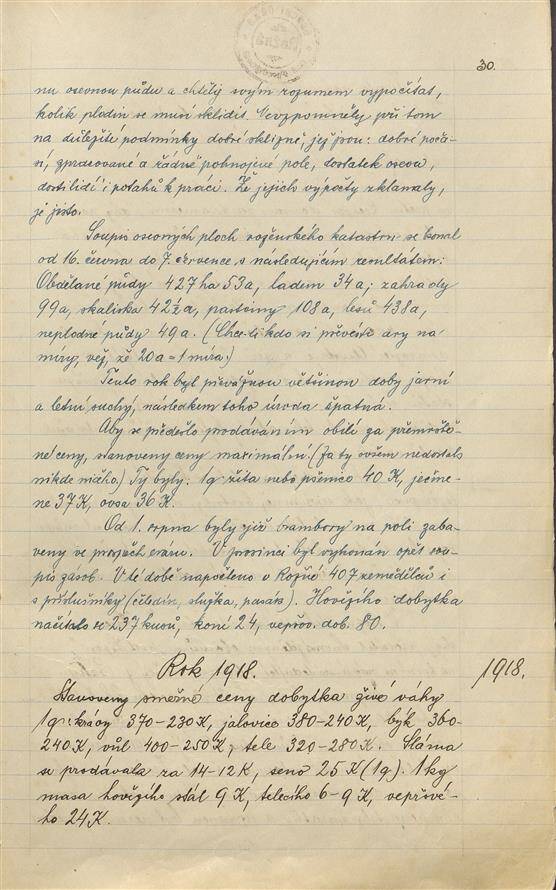 30.
nu osevnou půdu a chtěly svým rozumem vypočítat,
kolik plodin se musí sklidit. Nevzpomněly při tom
na důležité podmínky dobré sklizně, jež jsou: dobré poča-
sí, zpracované a řádně pohnojené pole, dostatek oseva,
dosti lidí i potahů k práci. Že jejich výpočty zklamaly,
je jisto.
Soupis osevných ploch roženského katastru se konal
od 16. června do 7. července, s následujícím resultátem:
Obdělané půdy 427 ha 53 a, ladem 34 a; zahrady
99 a, skaliska 42½ a, pastviny 108 a, lesů 438 a,
neplodné půdy 49 a. (Chce-li kdo si převésti ary na
míry, věz, že 20 a = 1 míra.)
Tento rok byl převážnou většinou doby jarní
a letní suchý, následkem toho úroda špatná.
Aby se předešlo prodáváním obilí za přemrště-
né ceny, stanoveny ceny maximální. (Za ty ovšem nedostals
nikde ničho.) Ty byly: 1 q žita nebo pšenice 40 K, ječme-
ne 37 K, ovsa 36 K.
Od 1. srpna byly již brambory na poli zaba-
veny ve prospěch eráru. V prosinci byl vykonán opět sou-
pis zásob. V té době napočteno v Rožné 407 zemědělců i
s příslušníky (čeledín, služka, pasák). Hovězího dobytka
načítalo se 237 kusů, koní 24, vepřov. dob. 80.
Rok 1918.
1918.
Stanoveny směrné ceny dobytka živé váhy
1 q: krávy 370-230 K, jalovice 380-240 K, býk 360-
240 K, vůl 400-250 K, tele 320-280 K. Sláma
se prodávala za 14-12 K, seno 25 K (1 q). 1 kg
masa hovězího stál 9 K, telecího 6-9 K, vepřové-
ho 24 K.